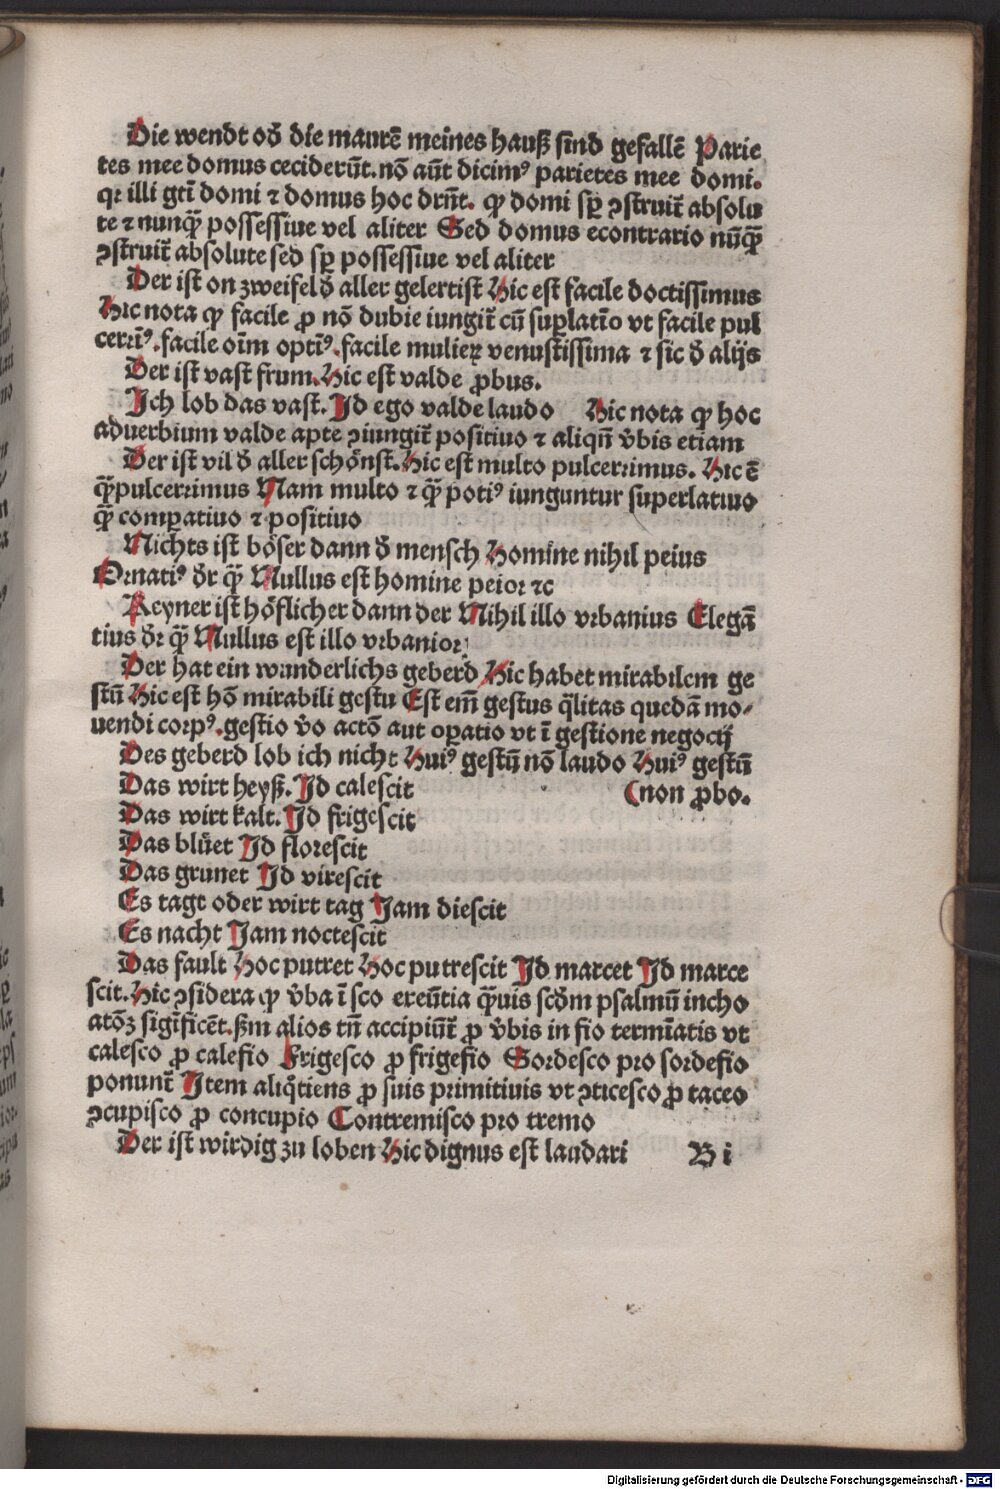 Die wendt od̄ die maurē meines hauß sind gefallē Parie
tes mee domus cecider̄ūt. nō aūt dicimꝰ parietes mee domi.
qꝛ illi gt̄i domi ⁊ domus hoc dr̄nt. ꝙ domi sꝑ ↄstruit᷑ absolu
te ⁊ nunqꝫ̄ possessiue vel aliter Sed domus econtrario nūqꝫ̄
ↄstruit᷑ absolute sed sꝑ possessiue vel aliter
Der ist on zweifel d̄ aller gelertist Hic est facile doctissimus
Hic nota ꝙ facile ꝓ nō dubie iungit᷑ cū suꝑlatīo vt facile pul
cerrīꝰ. facile oīm optīꝰ. facile mulieꝝ venustissima ⁊ sic d̄ alijs
Der ist vast frum. Hic est valde ꝓbus.
Ich lob das vast. Id ego valde laudo Hic nota ꝙ hoc
aduerbium valde apte ↄiungit᷑ positiuo ⁊ aliqn̄ v̄bis etiam
Der ist vil d̄ aller schönst. Hic est multo pulcerrimus. Hic ē
qꝫ̄pulcerrimus Nam multo ⁊ qꝫ̄ potiꝰ iunguntur superlatiuo
qꝫ̄ comꝑatiuo ⁊ positiuo
Nichts ist böser dann d̄ mensch Homine nihil peius
Ornatiꝰ dr̄ qꝫ̄ Nullus est homine peior ⁊c
Keyner ist höflicher dann der Nihil illo vrbanius Elegā
tius dr̄ qꝫ̄ Nullus est illo vrbanior
Der hat ein wunderlichs geberd Hic habet mirabilem ge
stū Hic est hō mirabili gestu Est em̄ gestus q̄litas quedā mo⸗
uendi corpꝰ. gestio v̄o actō aut oꝑatio vt ī gestione negocij
Des geberd lob ich nicht Huiꝰ gestū nō laudo Huiꝰ gestū
Das wirt heyß. Id calescit (non ꝓbo.
Das wirt kalt. Id frigescit
Das blüet Id florescit
Das grunet Id virescit
Es tagt oder wirt tag Iam diescit
Es nacht Iam noctescit
Das fault Hoc putret Hoc putrescit Id marcet Id marce
scit. Hic ↄsidera ꝙ v̄ba ī sco exeūtia qꝫ̄uis scd̄m psalmū incho
atōꝫ sigīficēt. ẞm alios tn̄ accipiūt᷑ ꝓ v̄bis in fio termīatis vt
calesco ꝓ calefio Frigesco ꝓ frigefio Sordesco pro sordefio
ponunt᷑ Item aliq̄tiens ꝓ suis primitiuis vt ↄticesco ꝓ taceo
ↄcupisco ꝓ concupio Contremisco pro tremo
Der ist wirdig zu loben Hic dignus est laudari B i
Digitalisierung gefördert durch die Deutsche Forschungsgemeinschaft - DFG